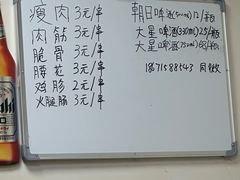 瘦肉 3元/串
肉筋 3元/串
脆骨 3元/串
腰花 3元/串
鸡胗 2元/串
火腿肠 3元/串
朝日啤酒(500ml) 12/
大星啤酒(330ml) 25/
大星啤酒(750ml) 68/
18715885543 同微
Asahi